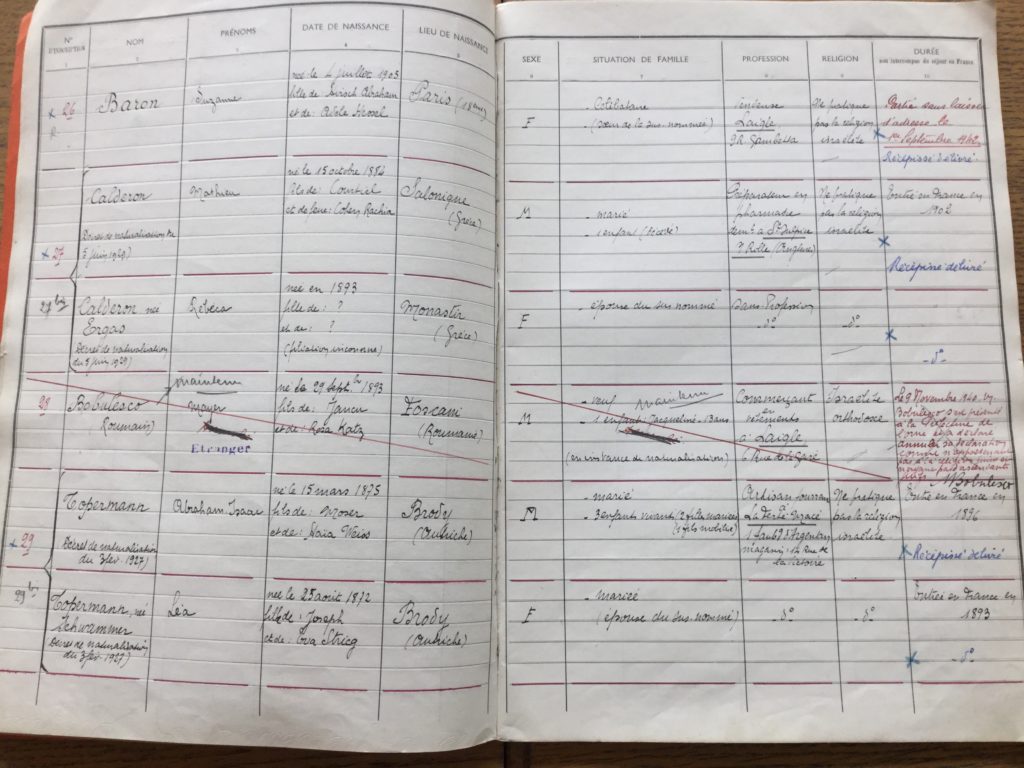 N° D'ÉTIQUETTER NOM PRÉNOMS DATE DE NAISSANCE LIEU DE NAISSANCE SEXE SITUATION DE FAMILLE PROFESSION RELIGION DURÉE
non interrompue de séjour en France
26 Baron Suzanne
née le 4 juillet 1903
fille de: Abraham
et de:
Paris (18eme)
F
- Célibataire
- (sœur de la sus-nommée)
vendeuse
Laigle
Gambetta
Ne pratique
pas la religion
israélite
Partie sans laisser
d'adresse le
1er Septembre 1942.
Récépissé délivré
27
Calderon
Décret de naturalisation du
5 juin 1929)
Mathieu
né le 15 octobre 1884
fils de: Courtiel
et de feue: Cohen Rachia
Salonique
(Grèce)
M
- marié
- 1 enfant (décédé)
Préparateur en
pharmacie
Ne pratique
pas la religion
israélite
Entré en France en
1902
Récépissé délivré
27 bis
Calderon née
Ergas
Décret de naturalisation
du 5 juin 1929)
née en 1893
fille de: ?
et de: ?
(filiation inconnue)
Monastir
(Grèce)
F
- épouse du sus-nommé
Sans Profession
- d°
- d°
- d°
28
Bobulesco
(Roumain)
Mayer
Etranger
né le 29 septbre 1893
fils de: Jancu
et de: Rosa Katz
Focsani
(Roumanie)
M
- veuf
- 1 enfant: Jacqueline - 13 ans
(en instance de naturalisation)
Commerçant
en
vêtements
à: Laigle
Rue de la Gare
Israélite
orthodoxe
Le 9 Novembre 1940. M.
Bobulesco s'est présenté
à la Préfecture de
l'Orne et a déclaré
annuler sa déclaration
comme n'appartenant
pas à la religion juive
Bobulesco
29
Topermann
(Décret de naturalisation
du 3 fév. 1927)
Abraham Isaac
né le 15 mars 1875
fils de: Moser
et de: Weiss
Brody
(Autriche)
M
- marié
- 3 enfants vivants (2 filles mariées)
(1 fils mobilisé)
Artisan
La Ferté Macé
magasin: 14 Rue de
la Victoire
Ne pratique
pas la religion
israélite
Entré en France en
1896
Récépissé délivré
29 bis
Topermann, née
Schwammer
(Décret de naturalisation
du 3 fév. 1927)
Léa
née le 25 août 1872
fille de: Joseph
et de:
Brody
(Autriche)
F
- mariée
- (épouse du sus-nommé)
d°
d°
Entrée en France en
1893
- d°